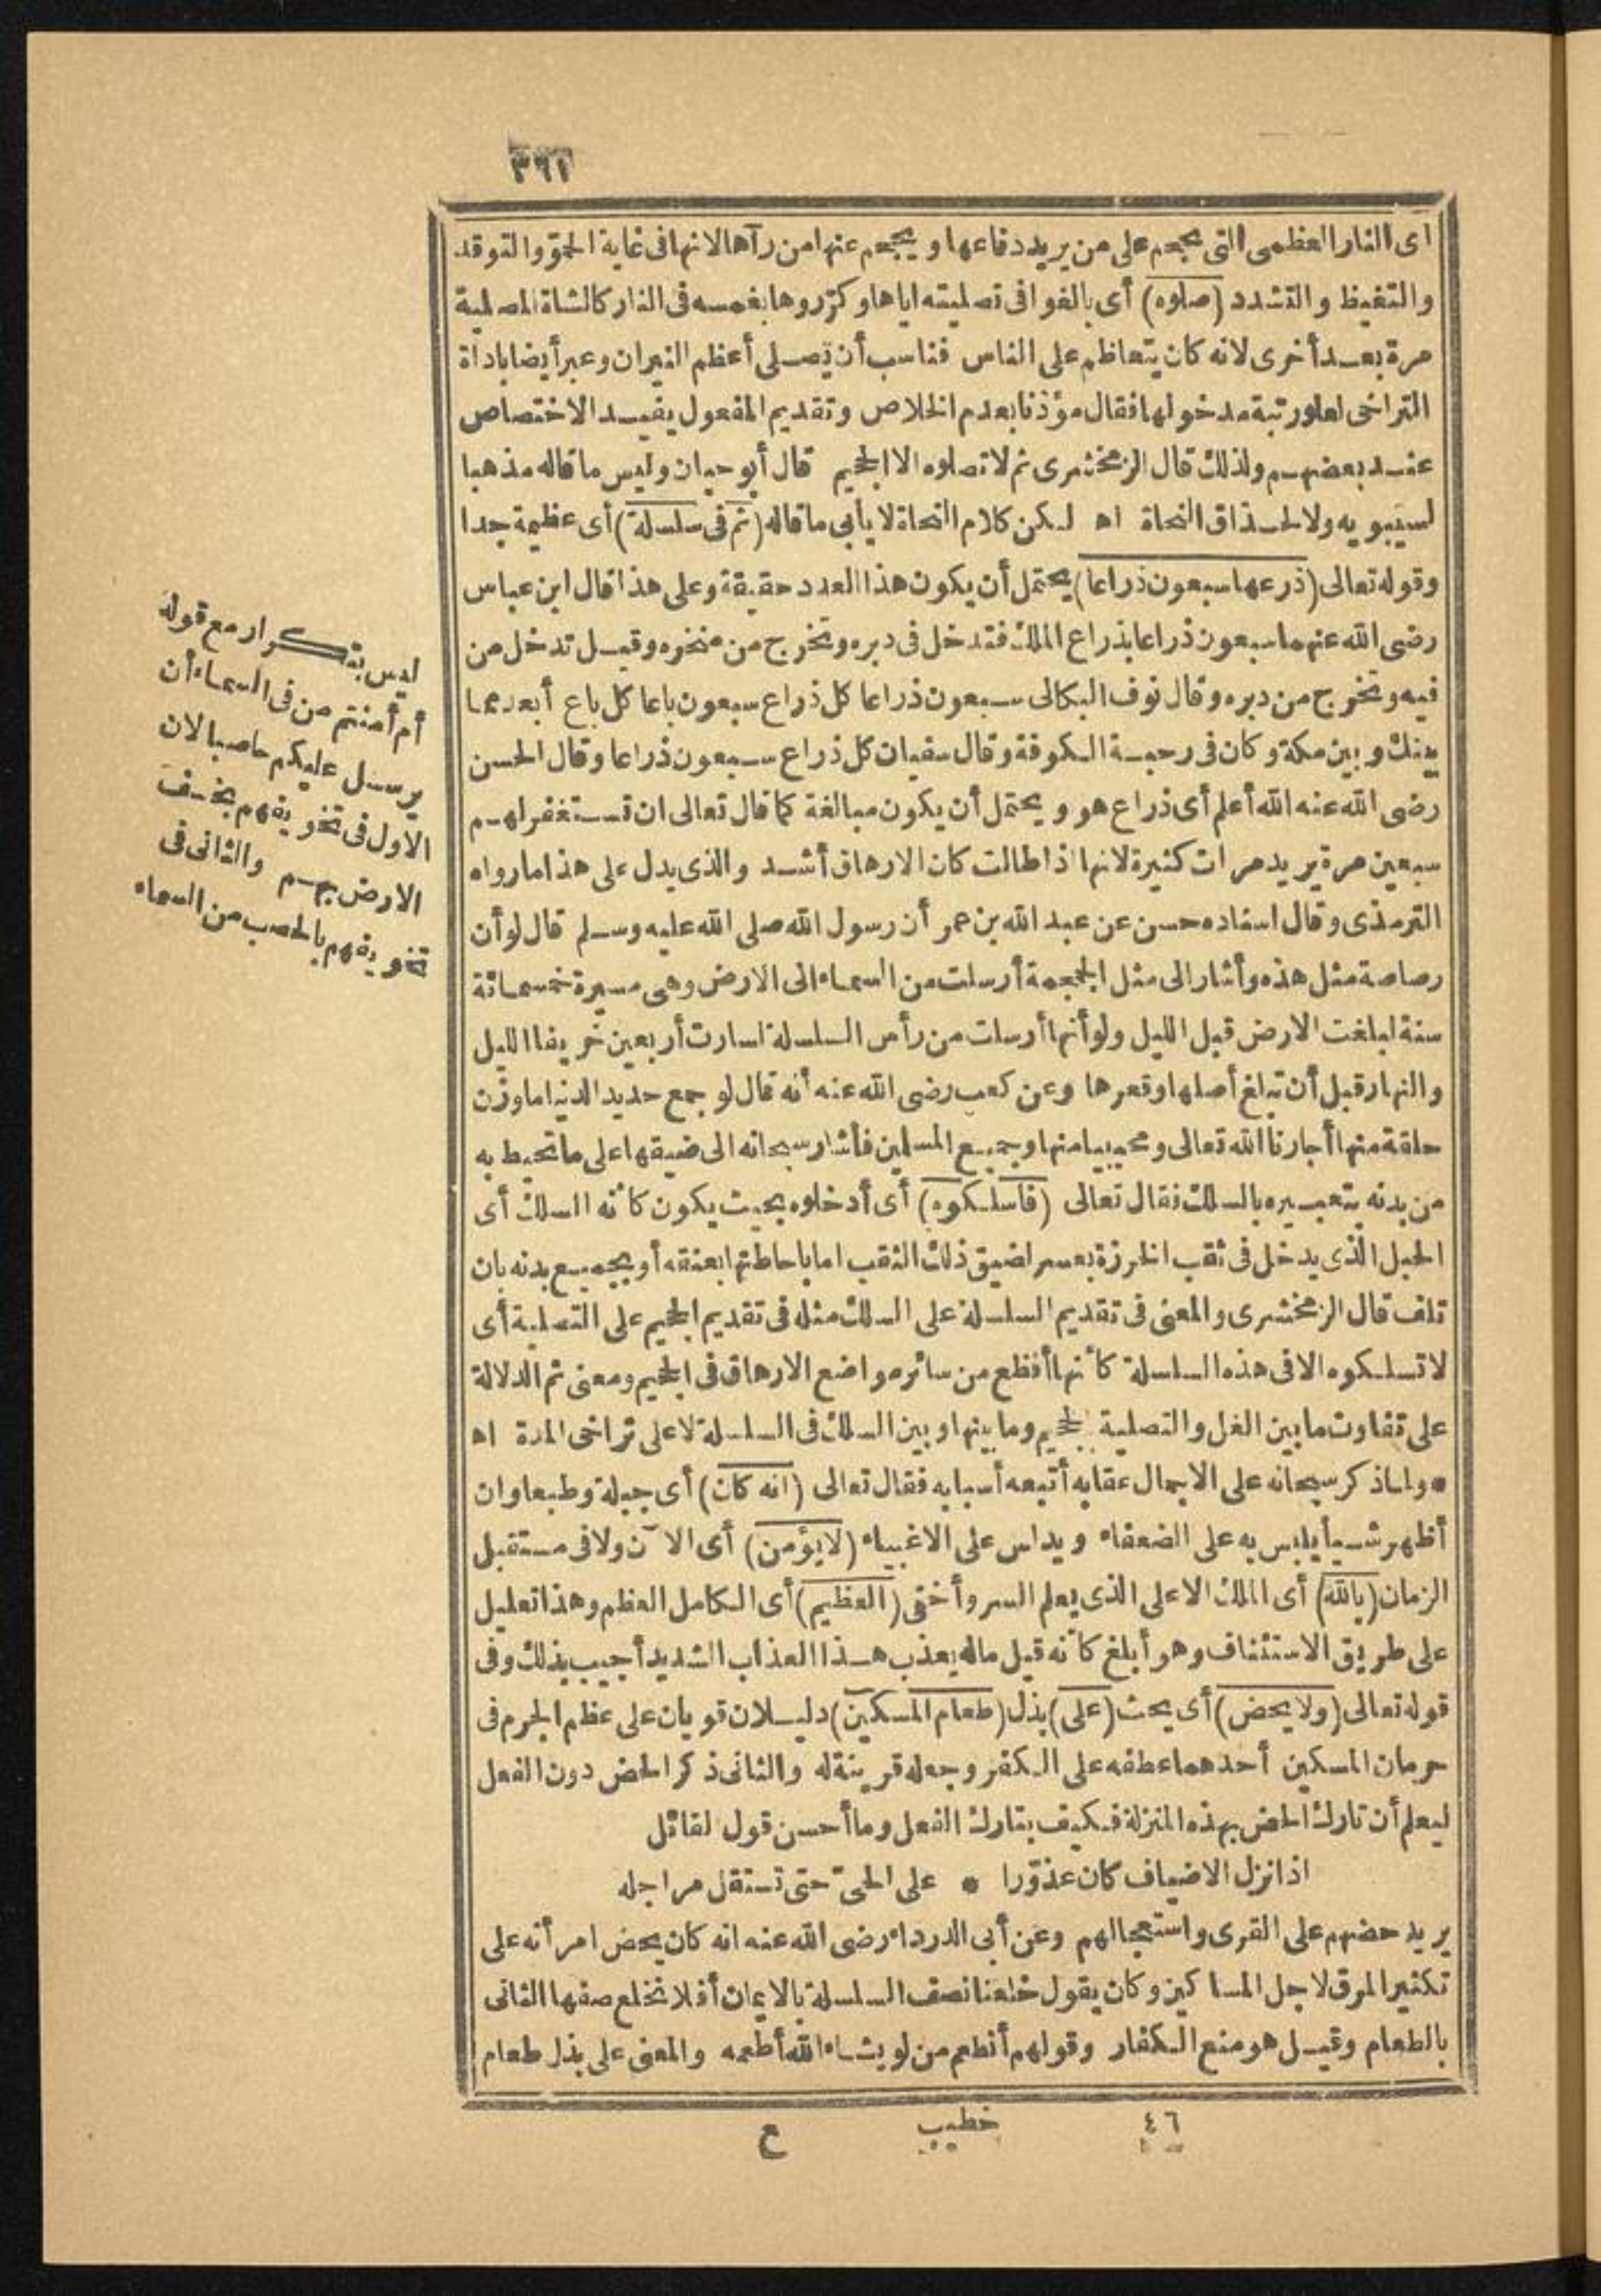 ٣٦١
اى النار العظمى التى تجحم على من يريد دفاعها ويحجم عنها من رآها لانها فى غاية الحمو والتوقد
والتغيظ والتشدد (صلوه) أى بالغوا فى تصليته اياها وكرّروها بغمسه فى النار كالشاة المصلية
مرة بعد أخرى لانه كان يتعاظم على الناس فناسب أن يصلى أعظم النيران وعبر أيضا باداة
التراخى لعلو رتبة مدخولها فقال مؤذنا بعدم الخلاص وتقديم المفعول يفيد الاختصاص
عند بعضهم ولذلك قال الزمخشرى ثم لا تصلوه الا الجحيم قال أبو حيان وليس ما قاله مذهبا
لسيبويه ولا لحذاق النحاة اه لكن كلام النحاة لا يأبى ما قاله (ثم فى سلسلة) أى عظيمة جدا
وقوله تعالى (ذرعها سبعون ذراعا) يحتمل أن يكون هذا العدد حقيقة وعلى هذا قال ابن عباس
رضى الله عنهما سبعون ذراعا بذراع الملك فتدخل فى دبره وتخرج من منخره وقيل تدخل من
فيه وتخرج من دبره وقال نوف البكالى سبعون ذراعا كل ذراع سبعون باعا كل باع أبعد مما
بينك وبين مكة وكان فى رحبة الكوفة وقال سفيان كل ذراع سبعون ذراعا وقال الحسن
رضى الله عنه الله أعلم أى ذراع هو ويحتمل أن يكون مبالغة كما قال تعالى ان تستغفر لهم
سبعين مرة يريد مرات كثيرة لانها اذا طالت كان الارهاق أشد والذى يدل على هذا ما رواه
الترمذى وقال اسناده حسن عن عبد الله بن عمر أن رسول الله صلى الله عليه وسلم قال لو أن
رصاصة مثل هذه وأشار الى مثل الجمجمة أرسلت من السماء الى الارض وهى مسيرة خمسمائة
سنة لبلغت الارض قبل الليل ولو أنها أرسلت من رأس السلسلة لسارت أربعين خريفا الليل
والنهار قبل أن تبلغ أصلها وقعرها وعن كعب رضى الله عنه أنه قال لو جمع حديد الدنيا ما وزن
حلقة منها أجارنا الله تعالى ومحبينا منها وجميع المسلمين فأشار سبحانه الى ضيقها على ما تحيط به
من بدنه بتعبيره بالسلك فقال تعالى (فاسلكوه) أى أدخلوه بحيث يكون كأنه السلك أى
الحبل الذى يدخل فى ثقب الخرزة بعسر لضيق ذلك الثقب اما باحاطتها بعنقه أو بجميع بدنه بان
تلف قال الزمخشرى والمعنى فى تقديم السلسلة على السلك مثله فى تقديم الجحيم على التصلية أى
لا تسلكوه الا فى هذه السلسلة كأنها أفظع من سائر مواضع الارهاق فى الجحيم ومعنى ثم الدلالة
على تفاوت ما بين الغل والتصلية بالجحيم وما بينها وبين السلك فى السلسلة لا على تراخى المدة اه
* ولما ذكر سبحانه على الاجمال عقابه أتبعه أسبابه فقال تعالى (انه كان) أى جبلة وطبعا وان
أظهر شيأ يلبس به على الضعفاء ويدلس على الاغبياء (لا يؤمن) أى الآن ولا فى مستقبل
الزمان (بالله) أى الملك الاعلى الذى يعلم السر وأخفى (العظيم) أى الكامل العظم وهذا تعليل
على طريق الاستئناف وهو أبلغ كأنه قيل ماله يعذب هذا العذاب الشديد أجيب بذلك وفى
قوله تعالى (ولا يحض) أى يحث (على) بذل (طعام المسكين) دليلان قويان على عظم الجرم فى
حرمان المسكين أحدهما عطفه على الكفر وجعله قرينة له والثانى ذكر الحض دون الفعل
ليعلم أن تارك الحض بهذه المنزلة فكيف بتارك الفعل وما أحسن قول لقائل
اذا نزل الاضياف كان عذوّرا * على الحىّ حتى تستقل مراجله
يريد حضهم على القرى واستعجالهم وعن أبى الدرداء رضى الله عنه انه كان يحض امرأته على
تكثير المرق لاجل المساكين وكان يقول خلعنا نصف السلسلة بالايمان أفلا نخلع نصفها الثانى
بالطعام وقيل هو منع الكفار وقولهم أنطعم من لو يشاء الله أطعمه والمعنى على بذل طعام
ليس بتكرار مع قوله
أم أمنتم من فى السماء أن
يرسل عليكم حاصبا لان
الاول فى تخويفهم بخسف
الارض بهم والثانى فى
تخويفهم بالحصب من السماء
٤٦ خطيب ع